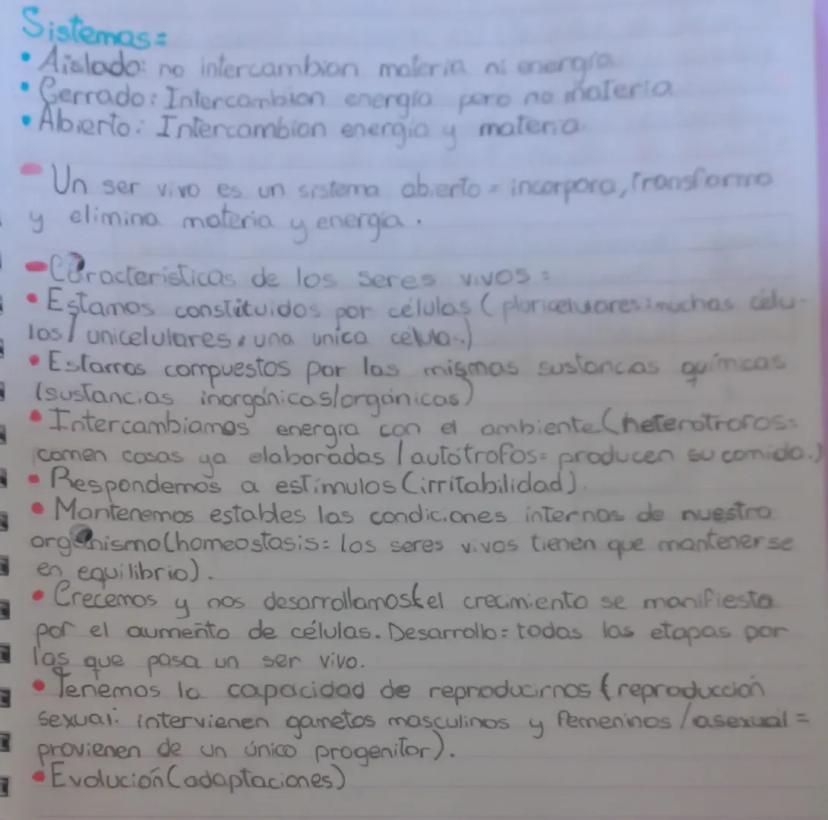 Sistemas:
• Aislado: no intercambian materia ni energía
• Cerrado: Intercambian energía pero no materia
• Abierto: Intercambian energía y materia
- Un ser vivo es un sistema abierto = incorpora, transforma
y elimina materia y energía.
- Caracteristicas de los seres vivos:
• Estamos constituidos por células (pluricelulares: muchas célu-
las/ unicelulares: una unica celula.)
• Estamos compuestos por las mismas sustancias químicas
(sustancias inorgánicas/orgánicas)
• Intercambiamos energia con el ambiente (heterotrofos:
comen cosas ya elaboradas / autótrofos= producen su comida.)
• Respondemos a estímulos (irritabilidad).
• Mantenemos estables las condiciones internas de nuestro
organismo (homeostasis: los seres vivos tienen que mantenerse
en equilibrio).
• Crecemos y nos desarrollamos (el crecimiento se manifiesta
por el aumento de células. Desarrollo: todas las etapas por
las que pasa un ser vivo.
• Tenemos la capacidad de reproducirnos (reproducción
sexual: intervienen gametos masculinos y femeninos / asexual =
provienen de un único progenitor).
• Evolución (adaptaciones)